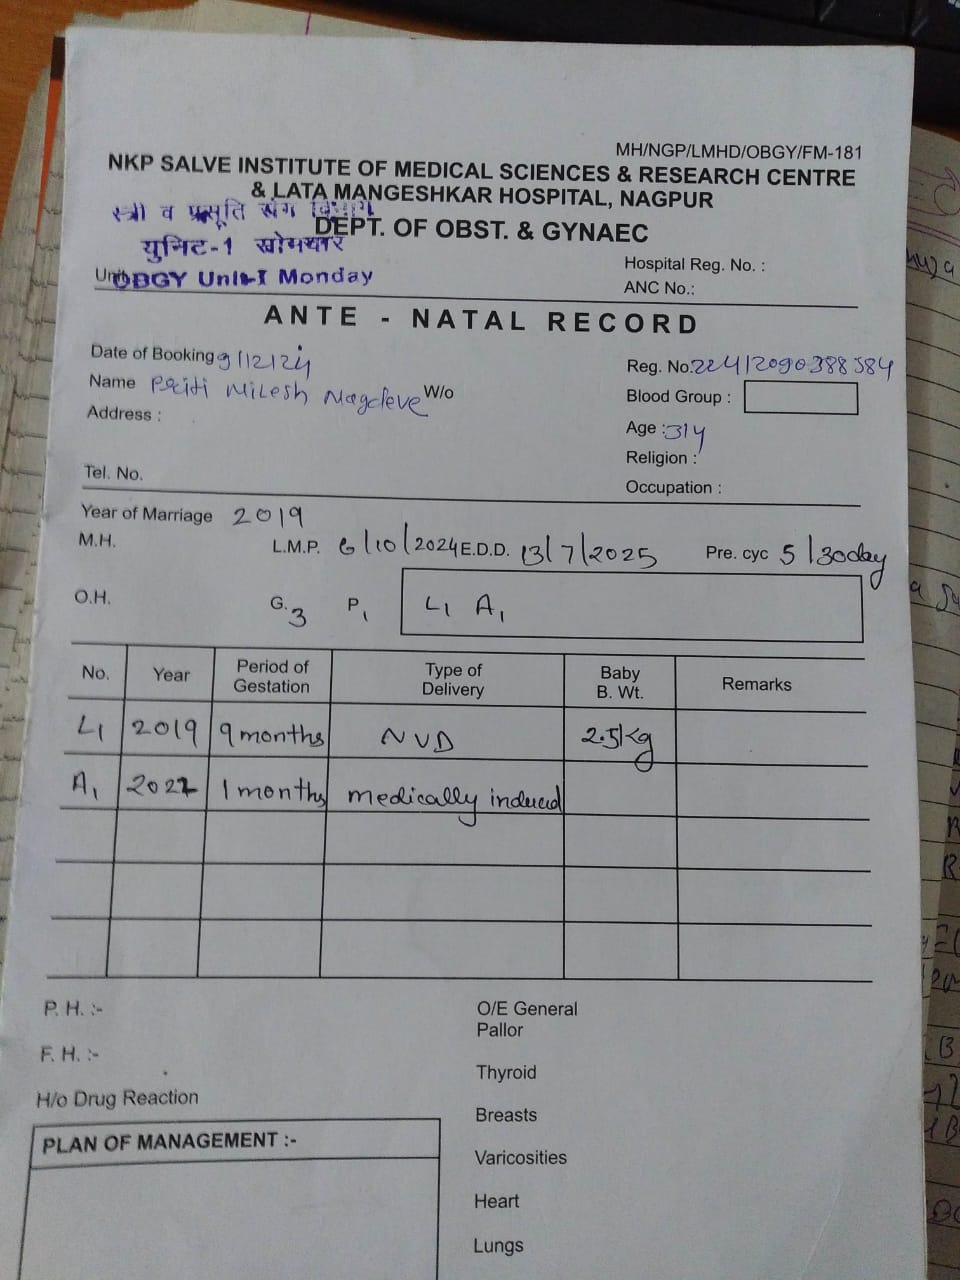 MH/NGP/LMHD/OBGY/FM-181
NKP SALVE INSTITUTE OF MEDICAL SCIENCES & RESEARCH CENTRE
& LATA MANGESHKAR HOSPITAL, NAGPUR
स्त्री व प्रसूति
DEPT. OF OBST. & GYNAEC
युनिट-1 सोमवार
Hospital Reg. No. :
Unit OBGY Unit-I Monday
ANC No.:
ANTE - NATAL RECORD
Date of Booking 9/12/24
Reg. No. 22412090388584
Name Priti Milesh W/o
Blood Group :
Address :
Age : 31y
Religion :
Tel. No.
Occupation :
Year of Marriage 2019
M.H. L.M.P. 6/10/2024 E.D.D. 13/7/2025 Pre. cyc 5/30day
O.H. G. 3 P1 L1 A1
No. Year Period of Gestation Type of Delivery Baby B. Wt. Remarks
L1 2019 9 months NVD 2.5kg
A1 1 months medically induced
P. H. :- O/E General
Pallor
F. H. :-
Thyroid
H/o Drug Reaction
Breasts
PLAN OF MANAGEMENT :-
Varicosities
Heart
Lungs